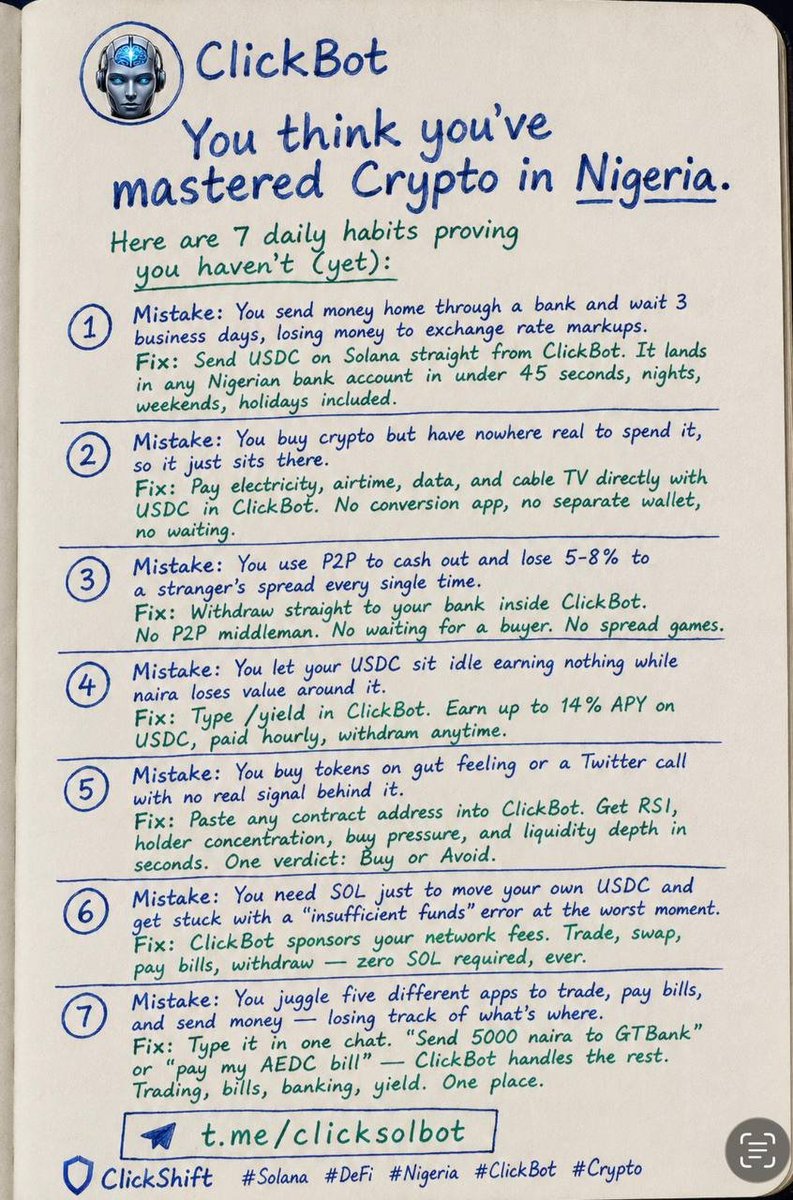 ClickBot
You think you've
mastered Crypto in Nigeria.
Here are 7 daily habits proving
you haven't (yet):
1
Mistake: You send money home through a bank and wait 3
business days, losing money to exchange rate markups.
Fix: Send USDC on Solana straight from ClickBot. It lands
in any Nigerian bank account in under 45 seconds, nights,
weekends, holidays included.
2
Mistake: You buy crypto but have nowhere real to spend it,
so it just sits there.
Fix: Pay electricity, airtime, data, and cable TV directly with
USDC in ClickBot. No conversion app, no separate wallet,
no waiting.
3
Mistake: You use P2P to cash out and lose 5-8% to
a stranger's spread every single time.
Fix: Withdraw straight to your bank inside ClickBot.
No P2P middleman. No waiting for a buyer. No spread games.
4
Mistake: You let your USDC sit idle earning nothing while
naira loses value around it.
Fix: Type /yield in ClickBot. Earn up to 14% APY on
USDC, paid hourly, withdram anytime.
5
Mistake: You buy tokens on gut feeling or a Twitter call
with no real signal behind it.
Fix: Paste any contract address into ClickBot. Get RSI,
holder concentration, buy pressure, and liquidity depth in
seconds. One verdict: Buy or Avoid.
6
Mistake: You need SOL just to move your own USDC and
get stuck with a "insufficient funds" error at the worst moment.
Fix: ClickBot sponsors your network fees. Trade, swap,
pay bills, withdraw — zero SOL required, ever.
7
Mistake: You juggle five different apps to trade, pay bills,
and send money — losing track of what's where.
Fix: Type it in one chat. "Send 5000 naira to GTBank"
or "pay my AEDC bill" — ClickBot handles the rest.
Trading, bills, banking, yield. One place.
t.me/clicksolbot
ClickShift #Solana #DeFi #Nigeria #ClickBot #Crypto